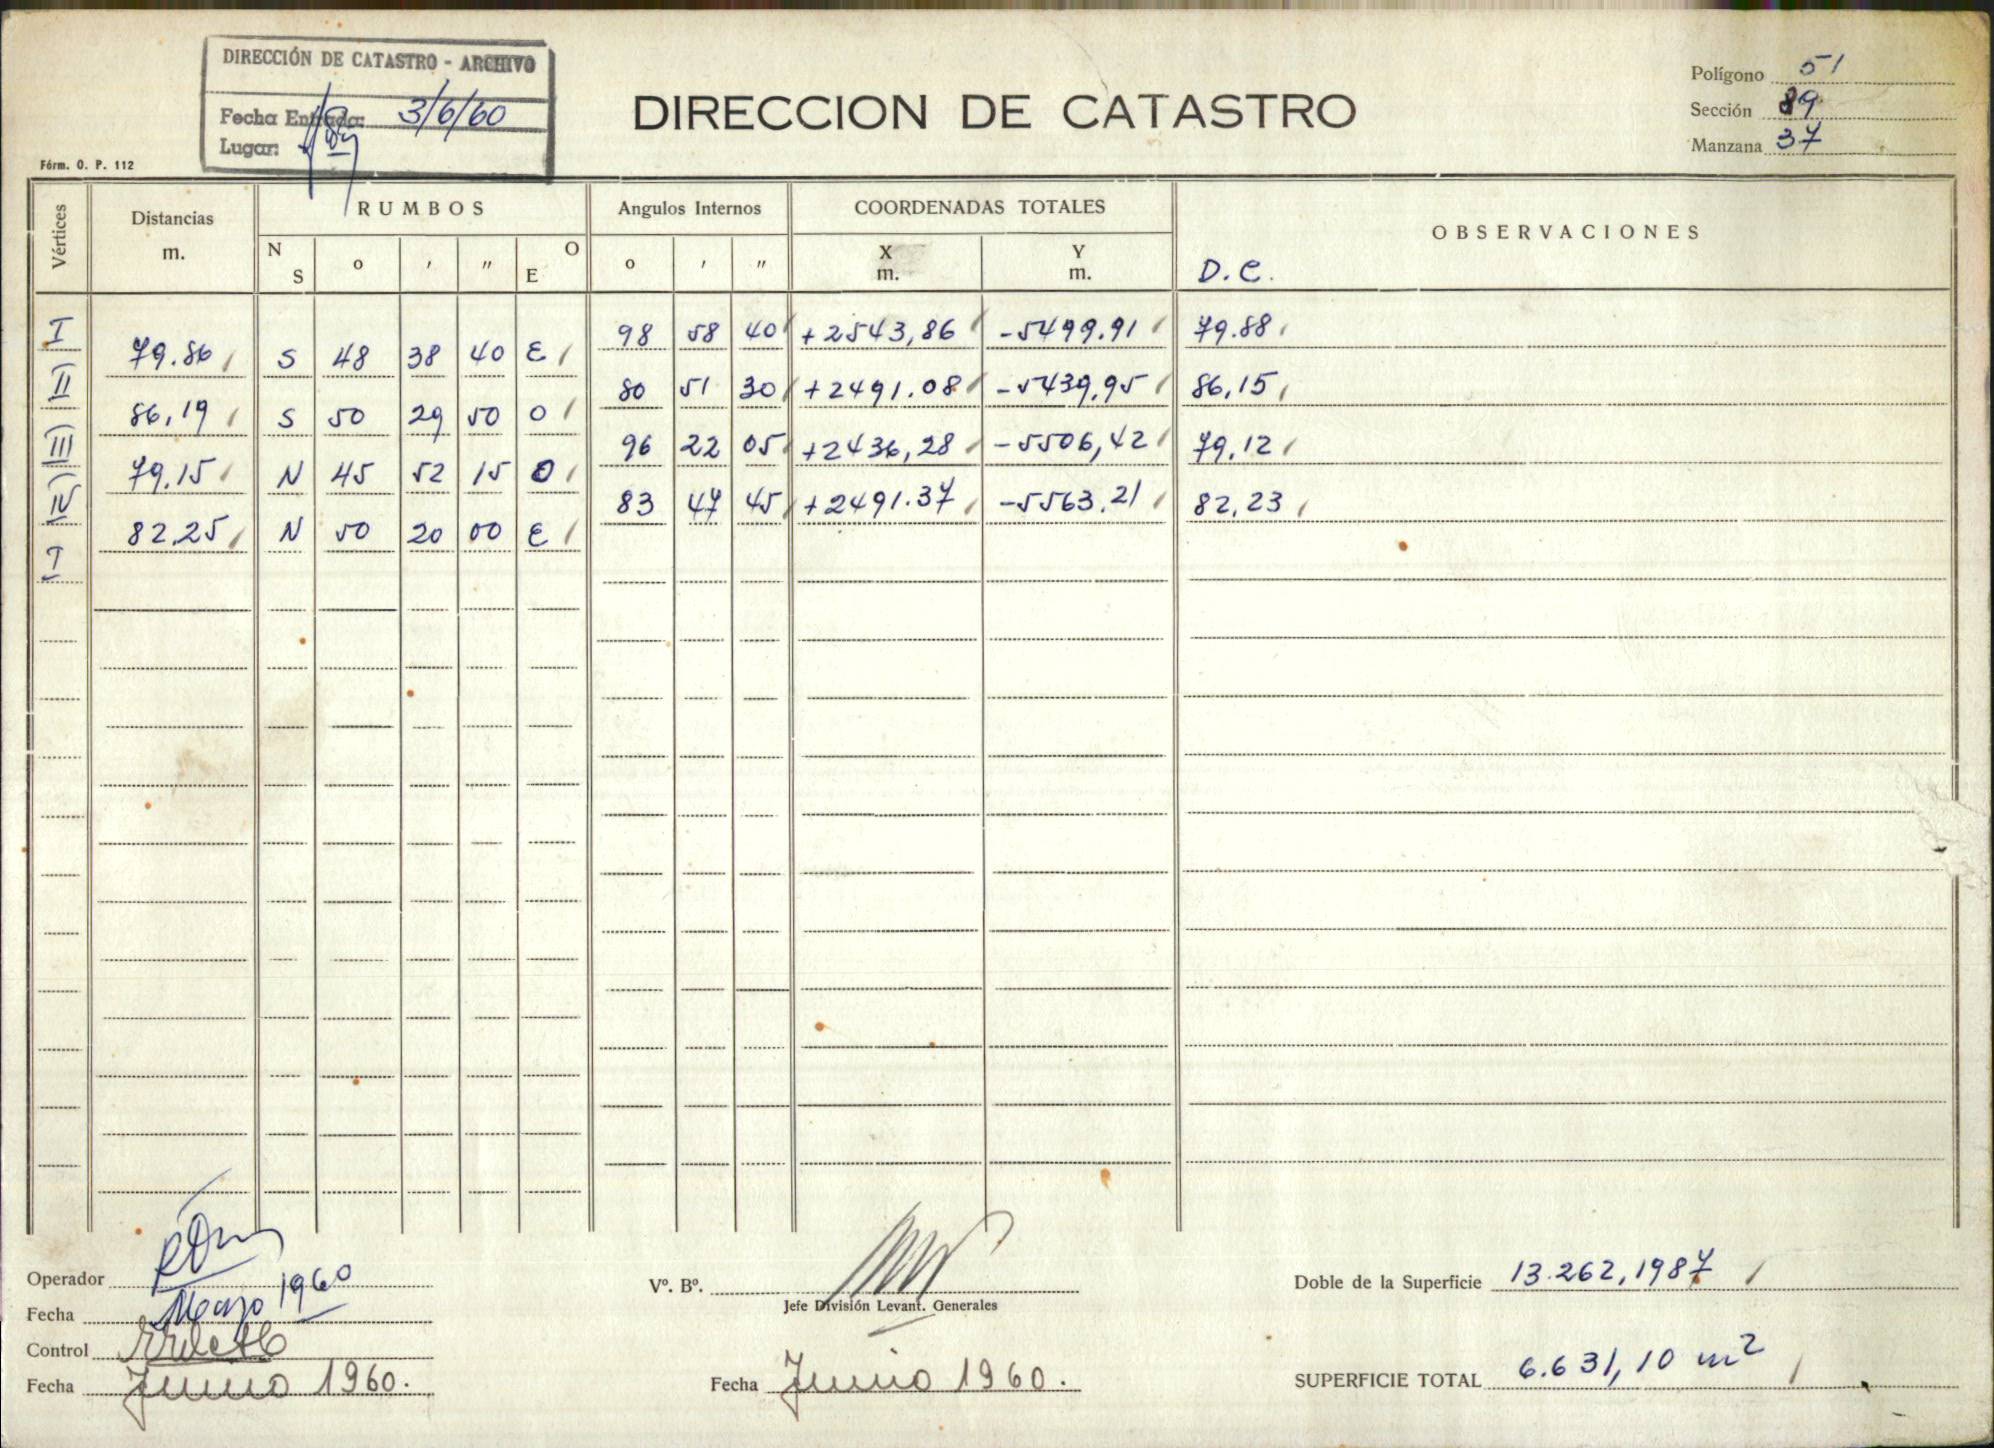 DIRECCIÓN DE CATASTRO - ARCHIVO
Fecha Entrada: 3/6/60
Lugar:
DIRECCION DE CATASTRO
Polígono 51
Sección 89
Manzana 37
Fórm. O. P. 112
Vértices
Distancias
m.
RUMBOS
N S ° ' " E O
Angulos Internos
° ' "
COORDENADAS TOTALES
X m. Y m.
OBSERVACIONES
D.C.
I 98 58 40 +2543,86 -5499.91 79.88
79.86 S 48 38 40 E
II 80 51 30 +2491.08 -5439,95 86,15
86,19 S 50 29 50 O
III 96 22 05 +2436,28 -5506,42 79,12
79,15 N 45 52 15 O
IV 83 47 45 +2491.37 -5563.21 82,23
82.25 N 50 20 00 E
I
Operador
Fecha Mayo 1960
Control
Fecha Junio 1960.
Vº. Bº.
Jefe División Levant. Generales
Fecha Junio 1960.
Doble de la Superficie 13.262,1987
SUPERFICIE TOTAL 6.631,10 m2